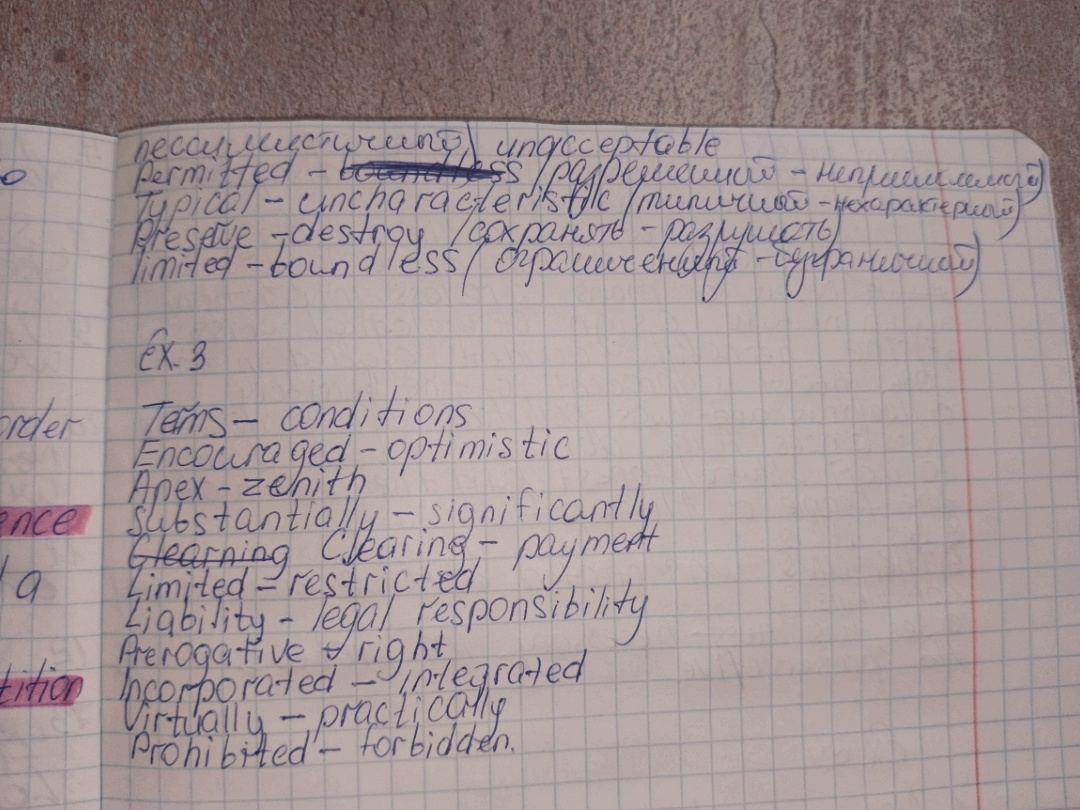 пессимистичный) unacceptable
Permitted - boundless (разрешенный - неприемлемый)
Typical - uncharacteristic (типичный - нехарактерный)
Preserve - destroy (сохранять - разрушать)
limited - boundless (ограниченный - безграничный)
Ex. 3
order
Terms - conditions
Encouraged - optimistic
Apex - zenith
ence
Substantially - significantly
Clearning Clearing - payment
a
Limited - restricted
Liability - legal responsibility
Prerogative - right
tition
Incorporated - integrated
Virtually - practically
Prohibited - forbidden.